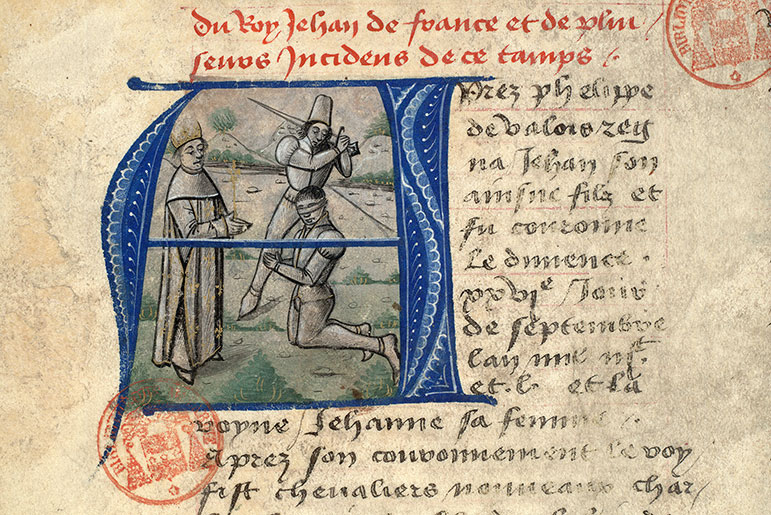 du Roy Jehan de france et de plui
seurs Incidens de ce tamps /.
Aprez phelippe
de valois reg
na Jehan son
ainsne filz et
fu couronne
Le dimence .
xxvie Jour
de septembre
Lan mil iijc
et .l. et la
royne Jehanne sa femme .
Aprez son couronnement Le roy
fist chevaliers nouveaux char